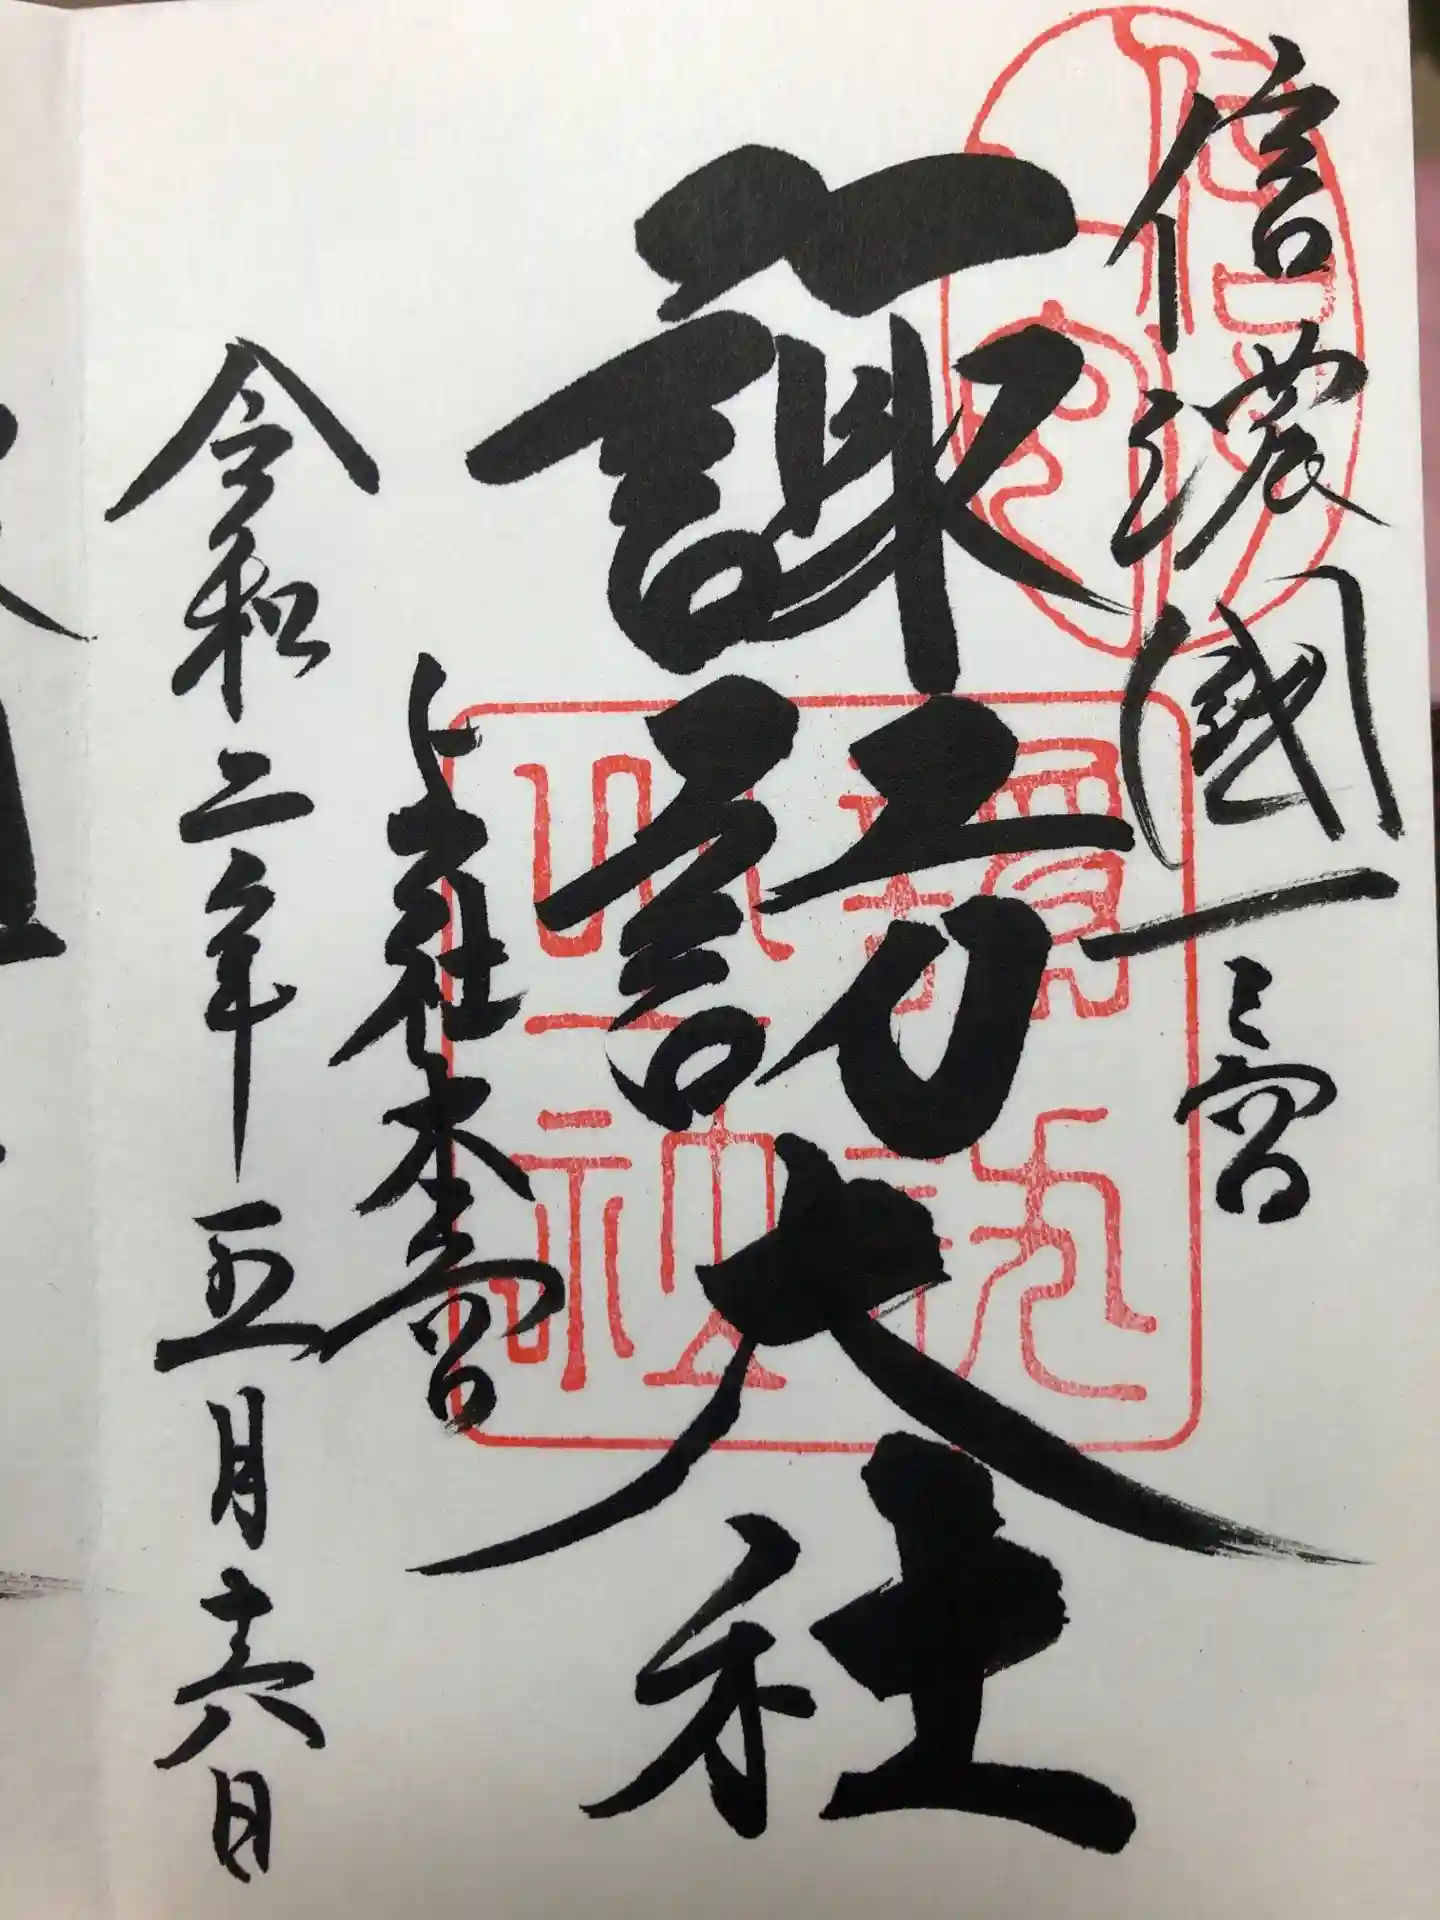 信濃國一之宮
諏訪大社
上社本宮
令和二年五月十六日